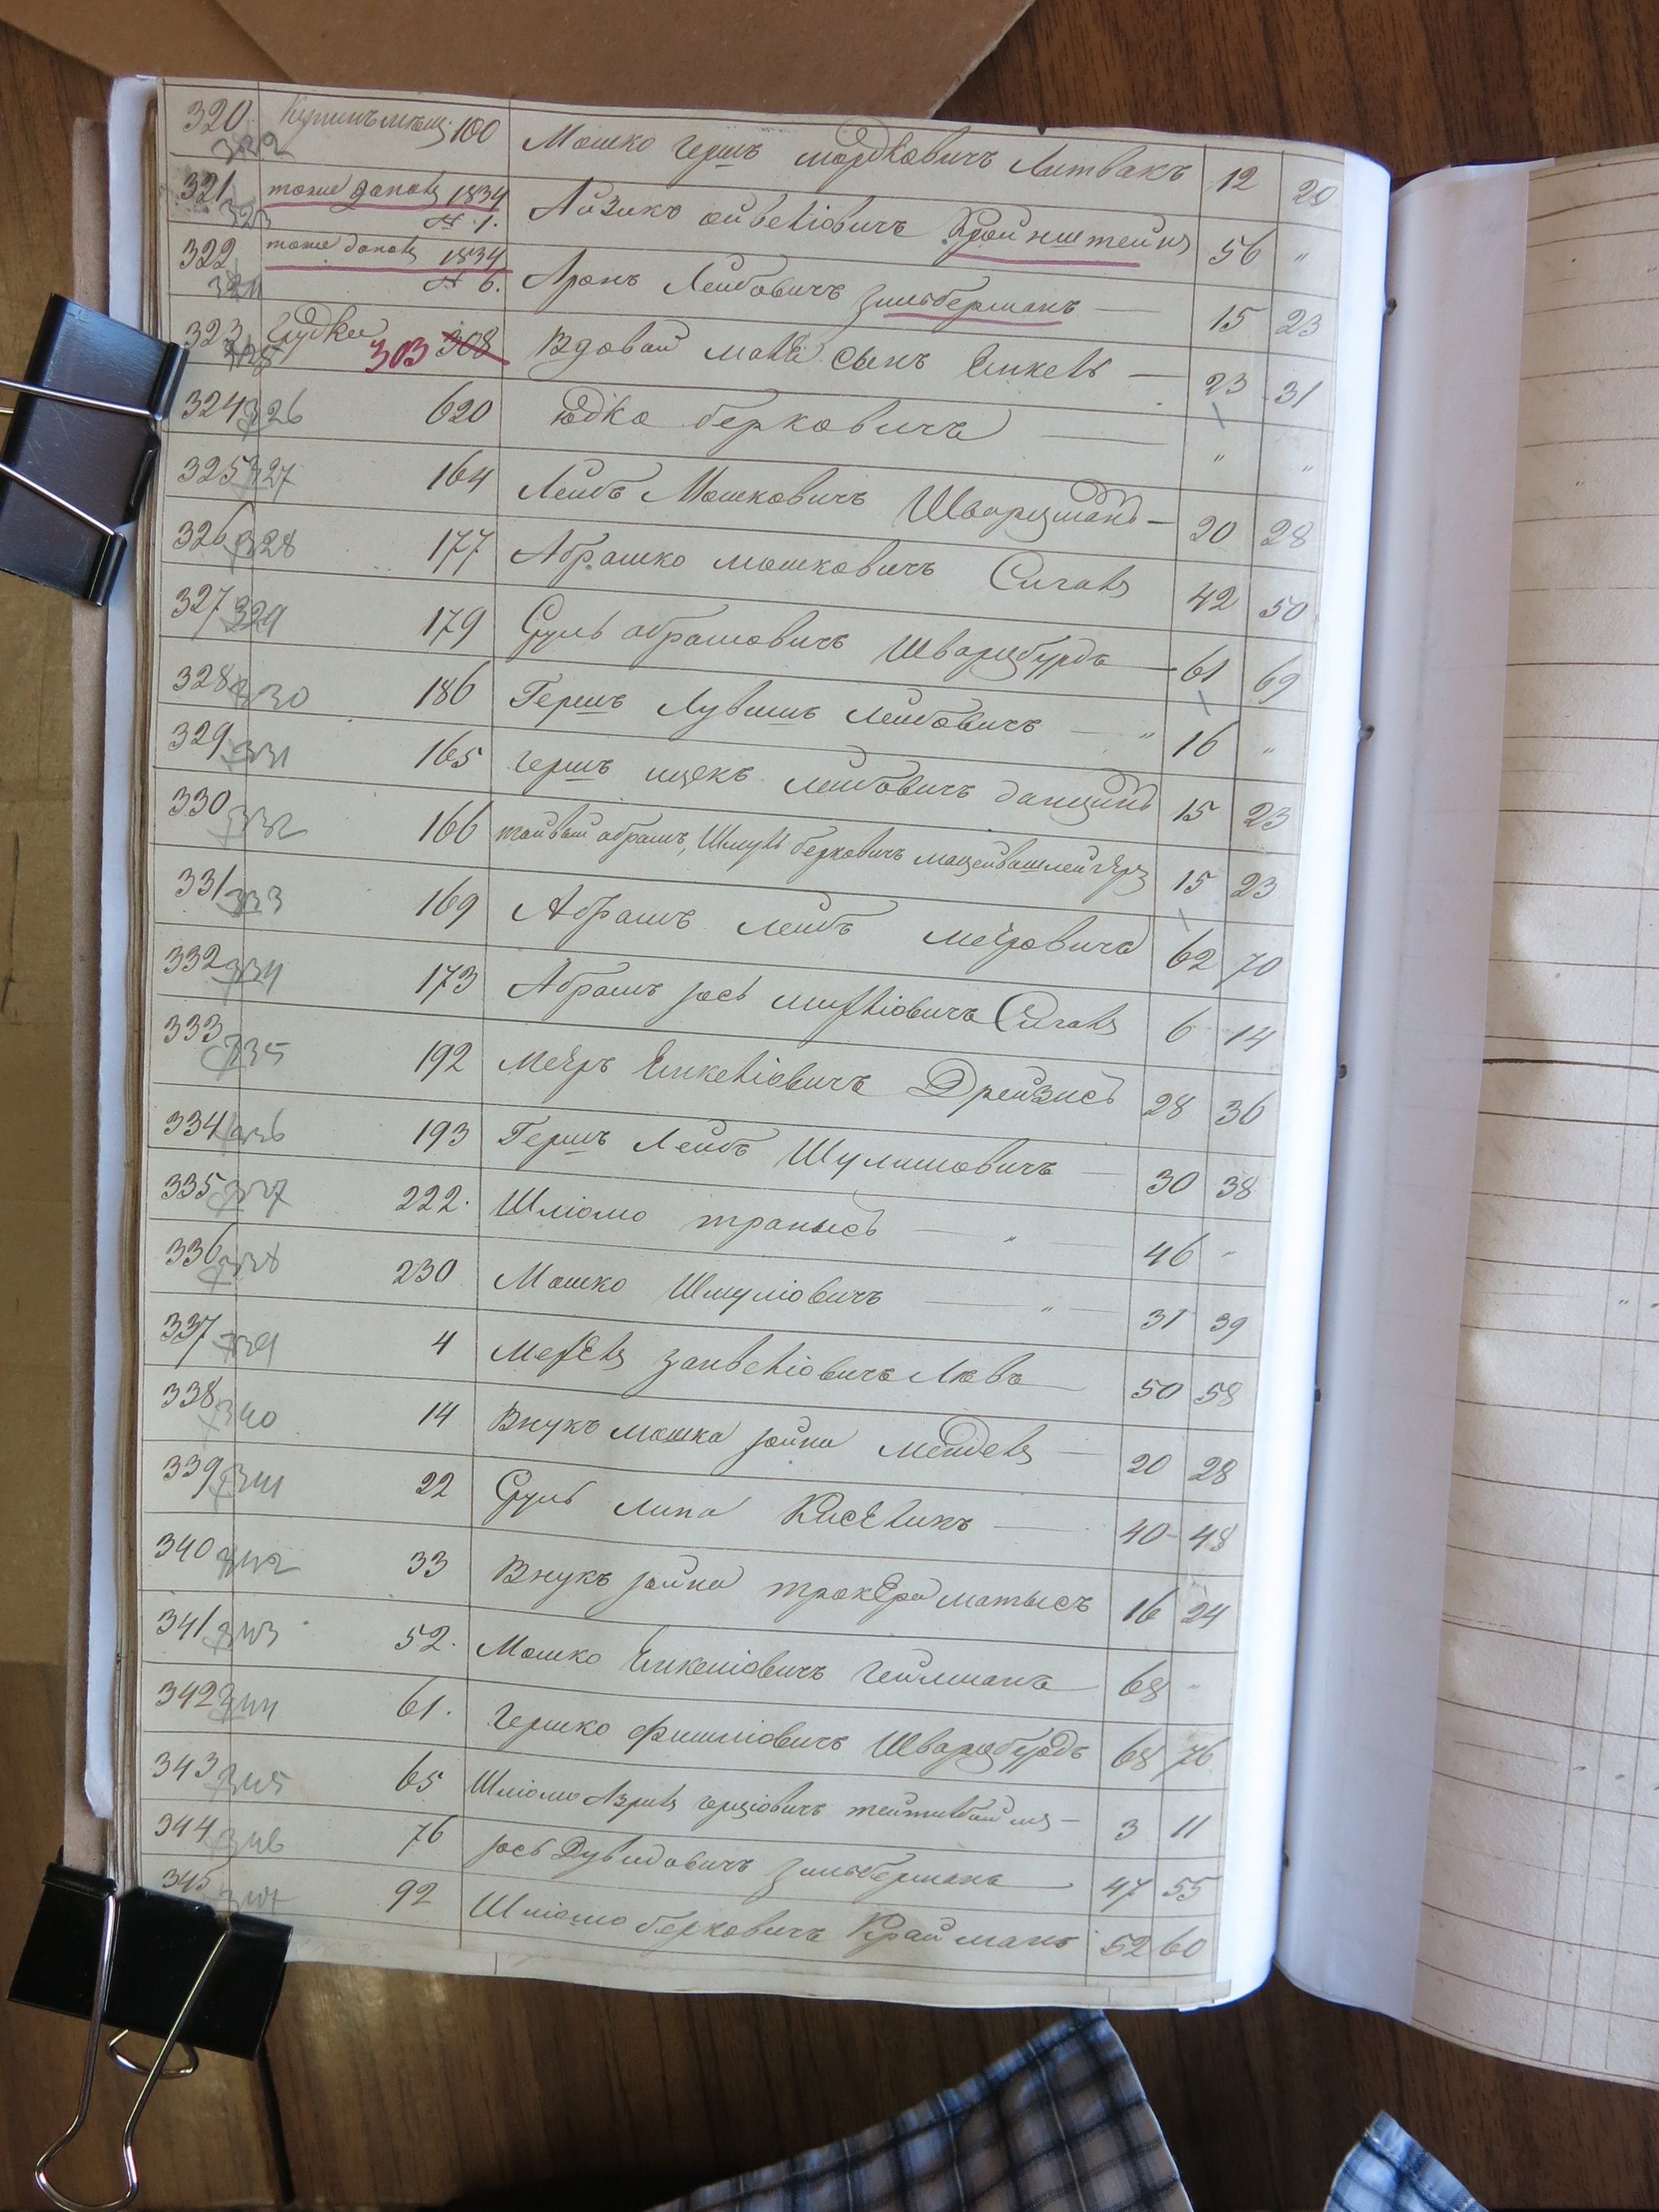 320 322 100 Мошко Герш Мордковичъ Литвакъ 12 20
321 323 тоже допол 1834 № 1. Айзикъ Ойвеліовичъ Крайнштейнъ 56 "
322 324 тоже допол 1834 № 6. Аронъ Лейбовичъ Зильберманъ — 15 23
323 325 303 308 Вдовый сынъ Енкель — 23 31
324 326 620 Юдка Берковичъ — " "
325 327 164 Лейбъ Мошковичъ Шварцманъ — 20 28
326 328 177 Абрашко Мошковичъ Сигалъ 42 50
327 329 179 Сруль Абрамовичъ Шварцбурдъ — 61 69
328 330 186 Гершъ Лейбовичъ — " 16 "
329 331 165 Гершъ Ицекъ Лейбовичъ 15 23
330 332 166 Абрамъ, Шмуль Берковичъ 15 23
331 333 169 Абрамъ Лейбъ Меєровичъ 62 70
332 334 173 Абрамъ Іось Сигалъ 6 14
333 335 192 Меєръ Енкеліовичъ Дрейзисъ 28 36
334 336 193 Гершъ Лейбъ Шулимовичъ — 30 38
335 337 222. Шліомо — " — 46 "
336 338 230 Мошко Шмуліовичъ — " — 31 39
337 339 4 Занвеліовичъ — 50 58
338 340 14 Внукъ Мошка Іойна Мендель — 20 28
339 341 22 Сруль Липа — 40 48
340 342 33 Внукъ Іойна Матысъ 16 24
341 343 52. Мошко Енкеліовичъ Гейлманъ — 68 "
342 344 61. Гершко Фишліовичъ Шварцбурдъ 68 76
343 345 65 Шліомо Азриль Герціовичъ — 3 11
344 346 76 Іось Дувидовичъ Зильберманъ — 47 55
345 347 92 Шліомо Берковичъ Крайманъ 52 60